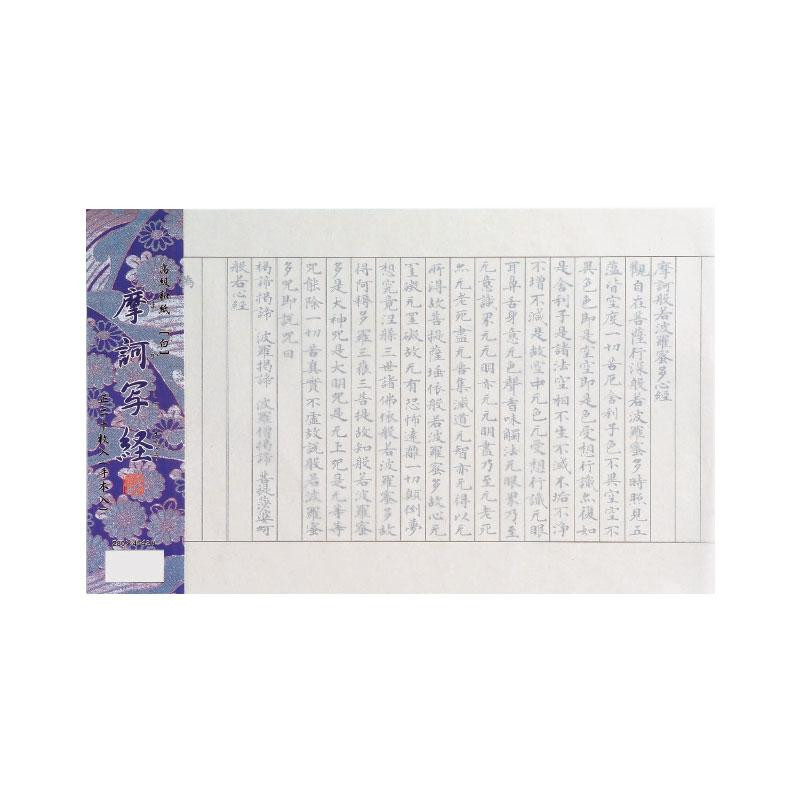 摩訶般若波羅蜜多心経
觀自在菩薩行深般若波羅蜜多時照見五
蘊皆空度一切苦厄舎利子色不異空空不
異色色即是空空即是色受想行識亦復如
是舎利子是諸法空相不生不滅不垢不浄
不增不減是故空中无色无受想行識无眼
耳鼻舌身意无色聲香味觸法无眼界乃至
无意識界无无明亦无无明盡乃至无老死
亦无老死盡无苦集滅道无智亦无得以无
所得故菩提薩埵依般若波羅蜜多故心无
罣礙无罣礙故无有恐怖遠離一切顛倒夢
想究竟涅槃三世諸佛依般若波羅蜜多故
得阿耨多羅三藐三菩提故知般若波羅蜜
多是大神咒是大明咒是无上咒是无等等
咒能除一切苦真實不虚故説般若波羅蜜
多咒即説咒曰
掲諦掲諦 波羅掲諦 波羅僧掲諦 菩提娑婆訶
般若心経
為
高級和紙 [白]
摩訶写経